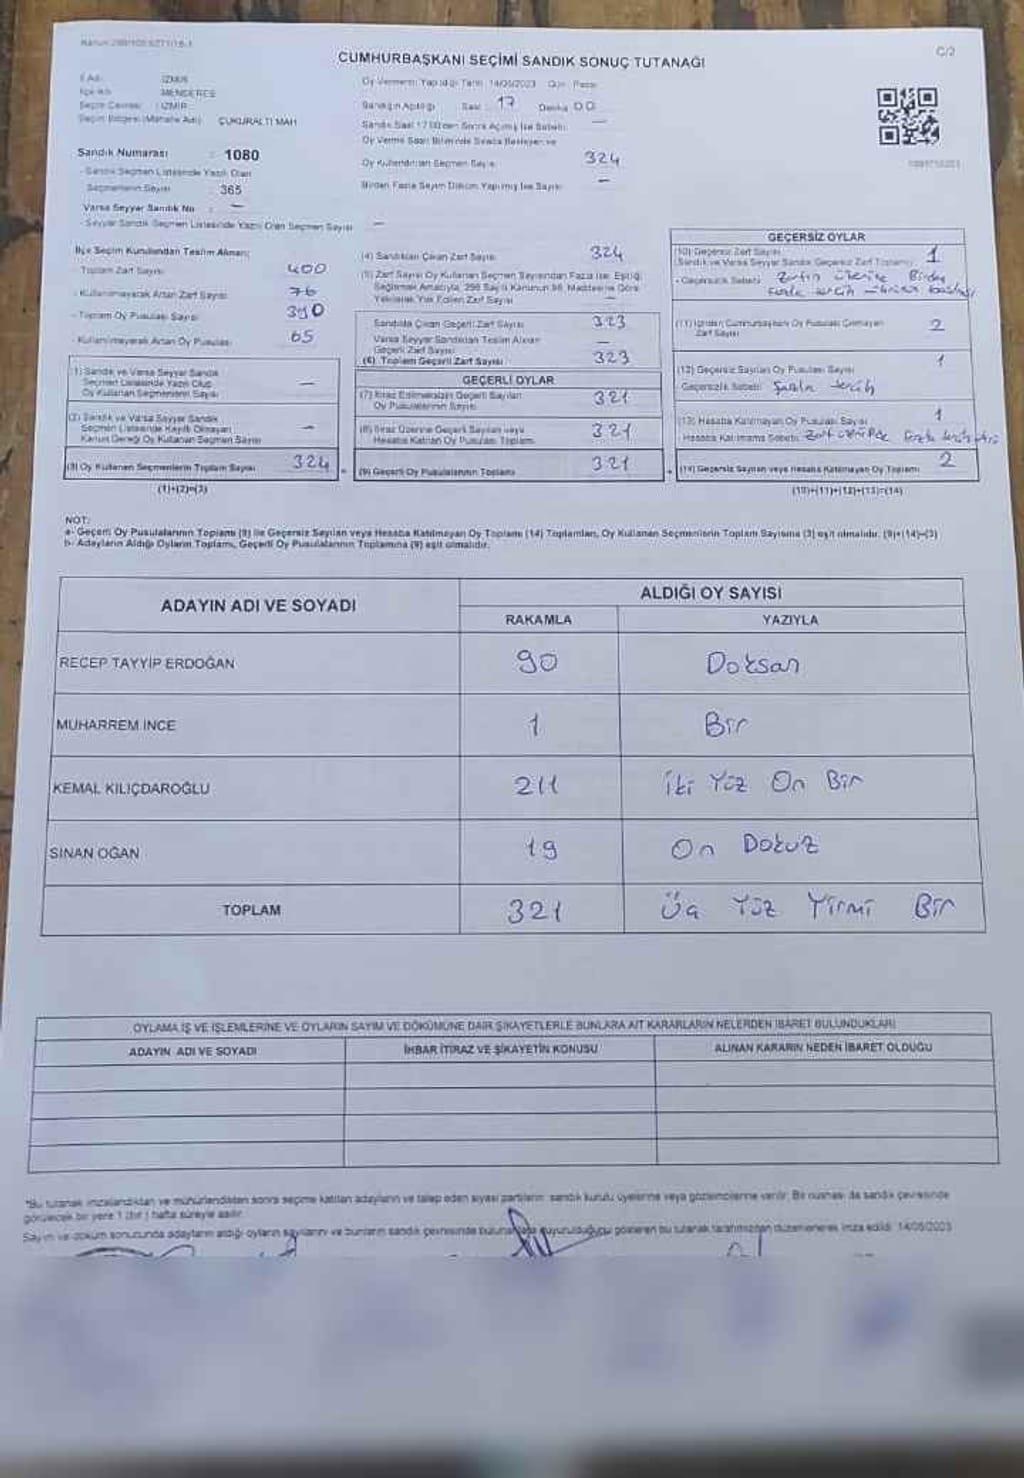 Kanun 298/105 6271/16-1
C/2
CUMHURBAŞKANI SEÇİMİ SANDIK SONUÇ TUTANAĞI
İl Adı : İZMİR
İlçe Adı : MENDERES
Seçim Çevresi : İZMİR
Seçim Bölgesi (Mahalle Adı) : ÇUKURALTI MAH
Sandık Numarası : 1080
- Sandık Seçmen Listesinde Yazılı Olan
Seçmenlerin Sayısı : 365
Varsa Seyyar Sandık No : —
- Seyyar Sandık Seçmen Listesinde Yazılı Olan Seçmen Sayısı —
Oy Vermenin Yapıldığı Tarih 14/05/2023 Gün Pazar
Sandığın Açıldığı Saat : 17 Dakika 00
Sandık Saat 17:00'den Sonra Açılmış İse Sebebi —
Oy Verme Saati Bitiminde Sırada Bekleyen ve
Oy Kullandırılan Seçmen Sayısı 324
Birden Fazla Sayım Döküm Yapılmış İse Sayısı —
İlçe Seçim Kurulundan Teslim Alınan;
- Toplam Zarf Sayısı 400
- Kullanılmayarak Artan Zarf Sayısı 76
- Toplam Oy Pusulası Sayısı 390
- Kullanılmayarak Artan Oy Pusulası 65
(1) Sandık ve Varsa Seyyar Sandık
Seçmen Listesinde Yazılı Olup
Oy Kullanan Seçmenlerin Sayısı —
(2) Sandık ve Varsa Seyyar Sandık
Seçmen Listesinde Kayıtlı Olmayan
Kanun Gereği Oy Kullanan Seçmen Sayısı —
(3) Oy Kullanan Seçmenlerin Toplam Sayısı 324
(1)+(2)=(3)
(4) Sandıktan Çıkan Zarf Sayısı 324
(5) Zarf Sayısı Oy Kullanan Seçmen Sayısından Fazla İse, Eşitliği
Sağlamak Amacıyla, 298 Sayılı Kanunun 98. Maddesine Göre
Yakılarak Yok Edilen Zarf Sayısı —
Sandıkta Çıkan Geçerli Zarf Sayısı 323
Varsa Seyyar Sandıktan Teslim Alınan
Geçerli Zarf Sayısı —
(6) Toplam Geçerli Zarf Sayısı 323
GEÇERLİ OYLAR
(7) İtiraz Edilmeksizin Geçerli Sayılan
Oy Pusulalarının Sayısı 321
(8) İtiraz Üzerine Geçerli Sayılan veya
Hesaba Katılan Oy Pusulası Toplamı 321
(9) Geçerli Oy Pusulalarının Toplamı 321
GEÇERSİZ OYLAR
(10) Geçersiz Zarf Sayısı
(Sandık ve Varsa Seyyar Sandık Geçersiz Zarf Toplamı) 1
- Geçersizlik Sebebi: Zarfın üzerine Birden
fazla tercih mührü
(11) İçinden Cumhurbaşkanı Oy Pusulası Çıkmayan
Zarf Sayısı 2
(12) Geçersiz Sayılan Oy Pusulası Sayısı 1
Geçersizlik Sebebi tercih
(13) Hesaba Katılmayan Oy Pusulası Sayısı 1
Hesaba Katılmama Sebebi: Zarf fazla
(14) Geçersiz Sayılan veya Hesaba Katılmayan Oy Toplamı 2
(10)+(11)+(12)+(13)=(14)
NOT:
a- Geçerli Oy Pusulalarının Toplamı (9) ile Geçersiz Sayılan veya Hesaba Katılmayan Oy Toplamı (14) Toplamları, Oy Kullanan Seçmenlerin Toplam Sayısına (3) eşit olmalıdır. (9)+(14)=(3)
b- Adayların Aldığı Oyların Toplamı, Geçerli Oy Pusulalarının Toplamına (9) eşit olmalıdır.
ADAYIN ADI VE SOYADI
ALDIĞI OY SAYISI
RAKAMLA YAZIYLA
RECEP TAYYİP ERDOĞAN 90 Doksan
MUHARREM İNCE 1 Bir
KEMAL KILIÇDAROĞLU 211 İki Yüz On Bir
SİNAN OĞAN 19 On Dokuz
TOPLAM 321 Üç Yüz Yirmi Bir
OYLAMA İŞ VE İŞLEMLERİNE VE OYLARIN SAYIM VE DÖKÜMÜNE DAİR ŞİKAYETLERLE BUNLARA AİT KARARLARIN NELERDEN İBARET BULUNDUKLARI
ADAYIN ADI VE SOYADI İHBAR İTİRAZ VE ŞİKAYETİN KONUSU ALINAN KARARIN NEDEN İBARET OLDUĞU
*Bu tutanak imzalandıktan ve mühürlendikten sonra seçime katılan adayların ve talep eden siyasi partilerin sandık kurulu üyelerine veya gözlemcilerine verilir. Bir nüshası da sandık çevresinde
görülecek bir yere 1 (bir) hafta süreyle asılır.
Sayım ve döküm sonucunda adayların aldığı oyların sayılarını ve bunların sandık çevresinde duyurulduğunu gösteren bu tutanak tarafımızdan düzenlenerek imza edildi. 14/05/2023